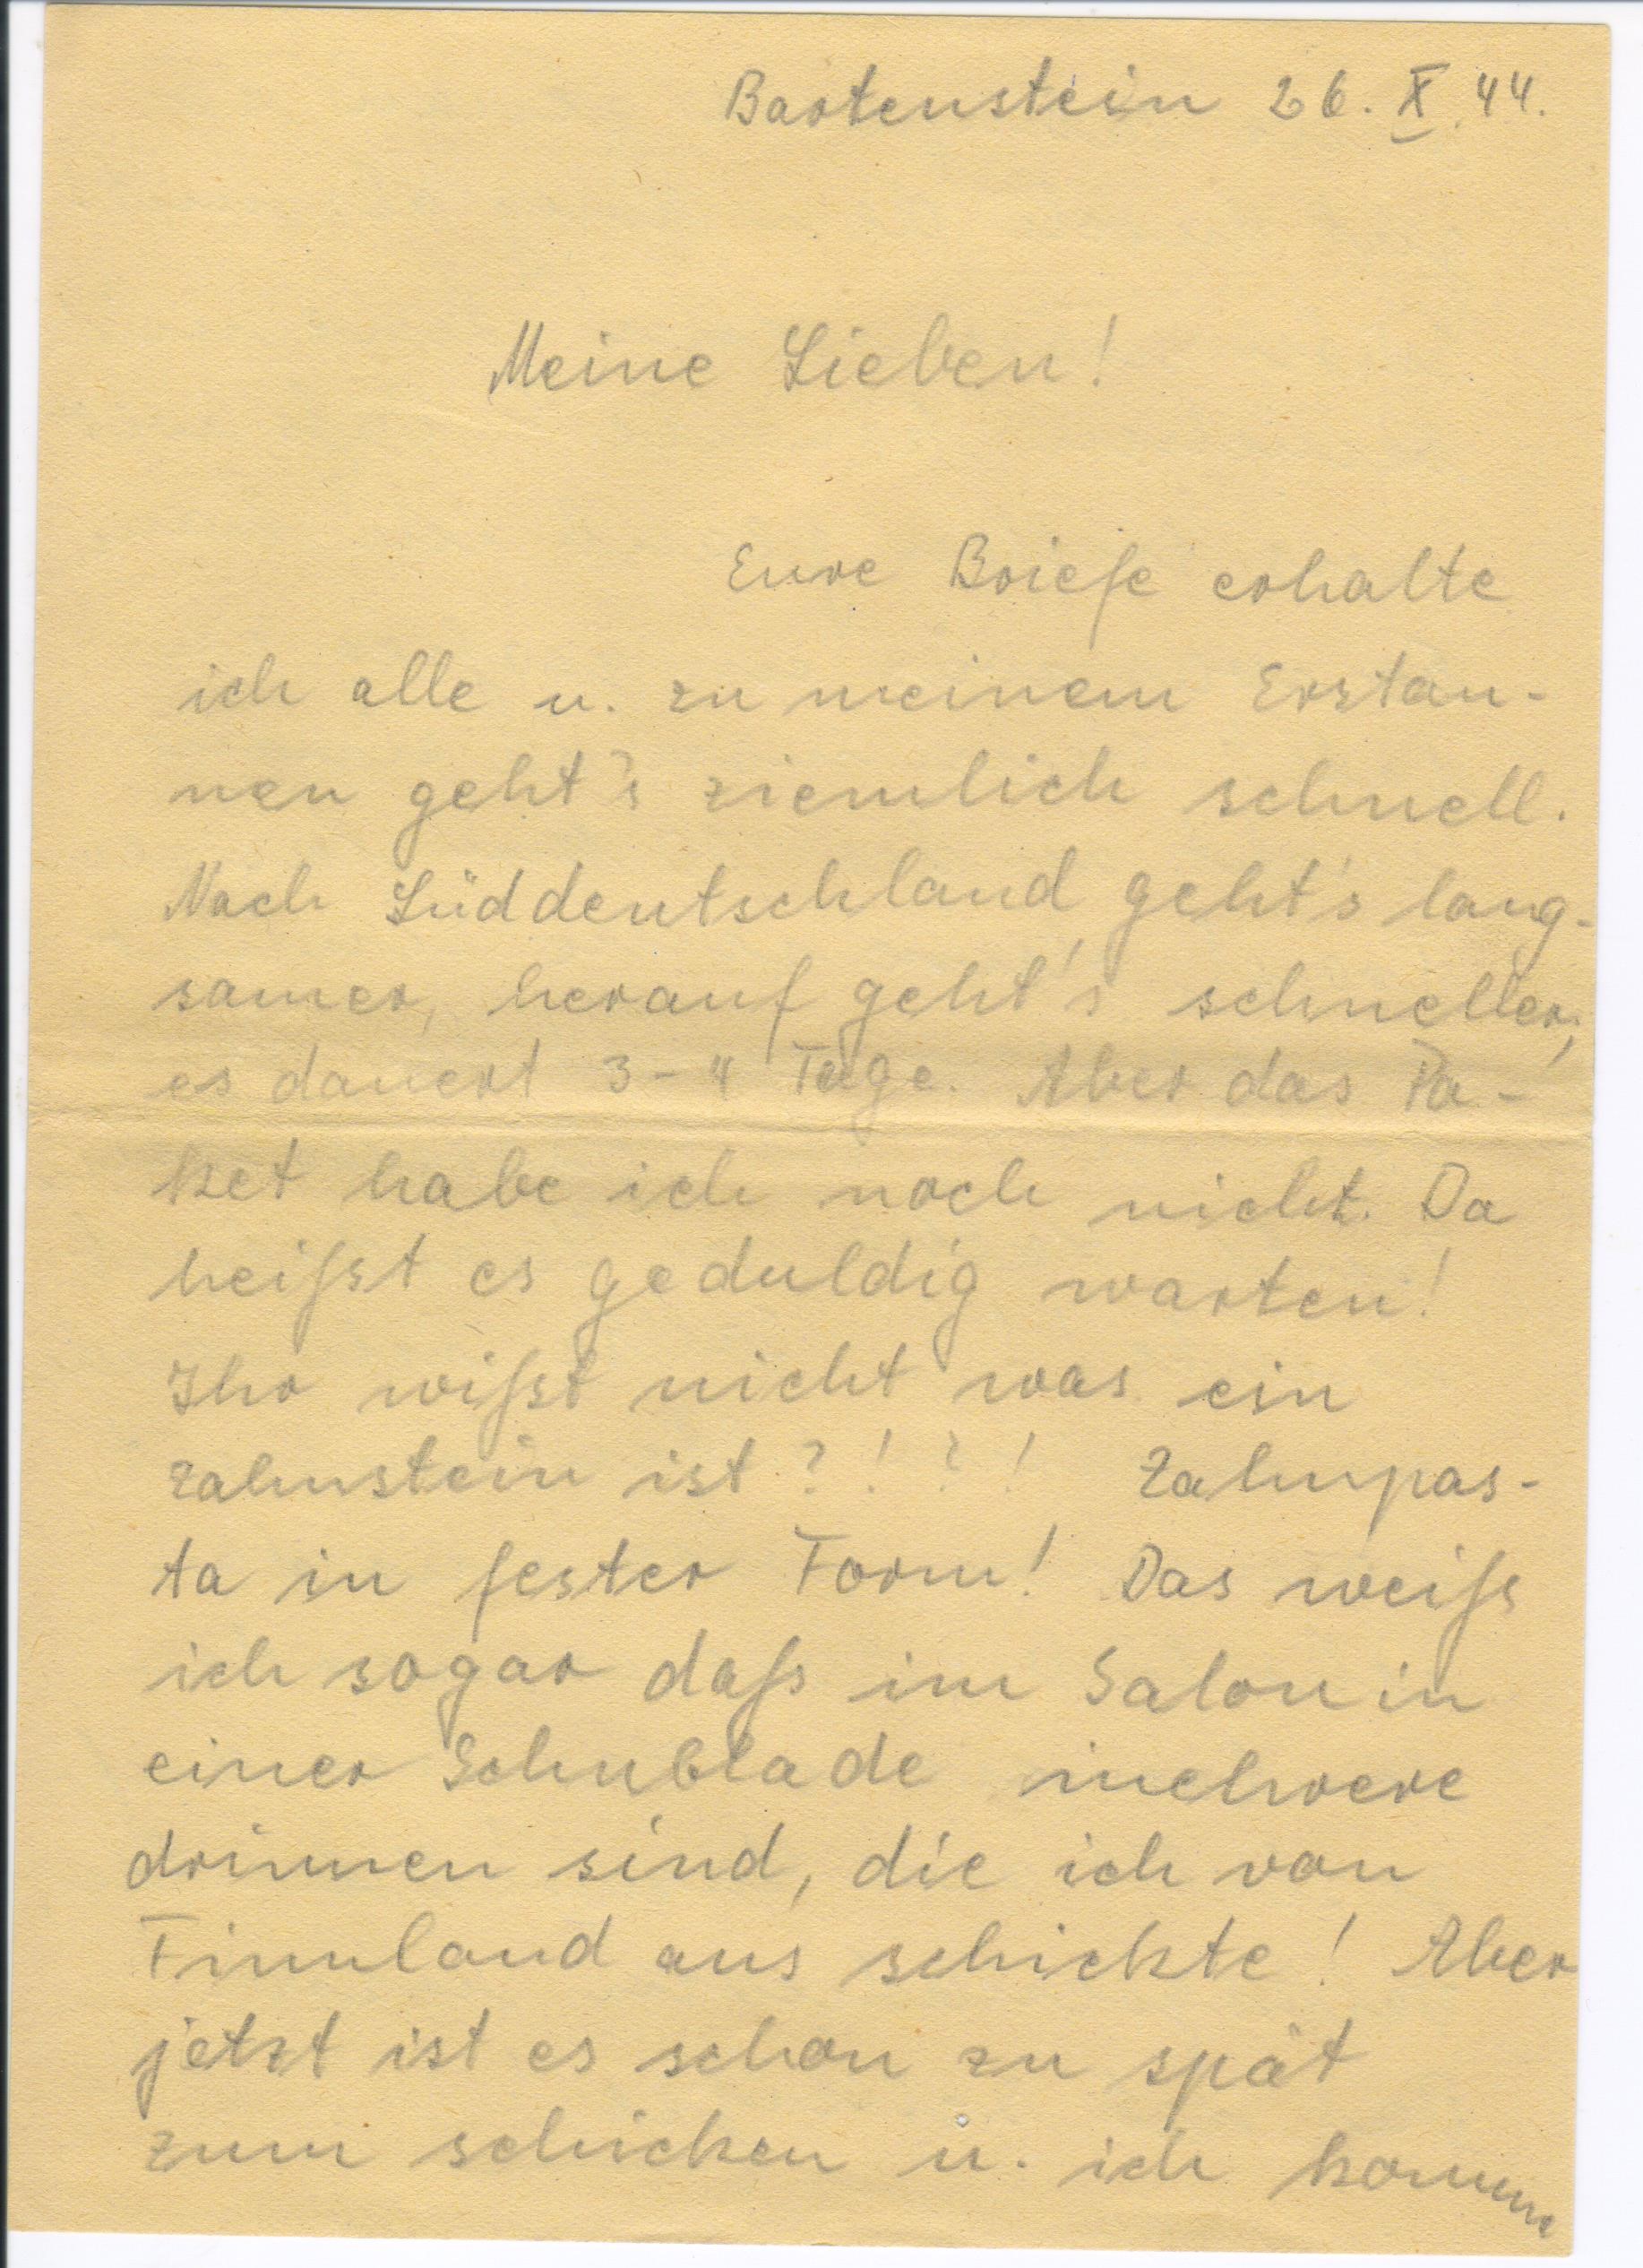 Bartenstein 26. X. 44.
Meine Lieben!
Eure Briefe erhalte
ich alle u. zu meinem Erstau-
nen geht's ziemlich schnell.
Nach Süddeutschland geht's lang-
samer, herauf geht's schneller;
es dauert 3-4 Tage. Aber das Pa-
ket habe ich noch nicht. Da
heißt es geduldig warten!
Ihr wißt nicht was ein
Zahnstein ist?!?! Zahnpas-
ta in fester Form! Das weiß
ich sogar daß im Salon in
einer Schublade mehrere
drinnen sind, die ich von
Finnland aus schickte! Aber
jetzt ist es schon zu spät
zum schicken u. ich komme